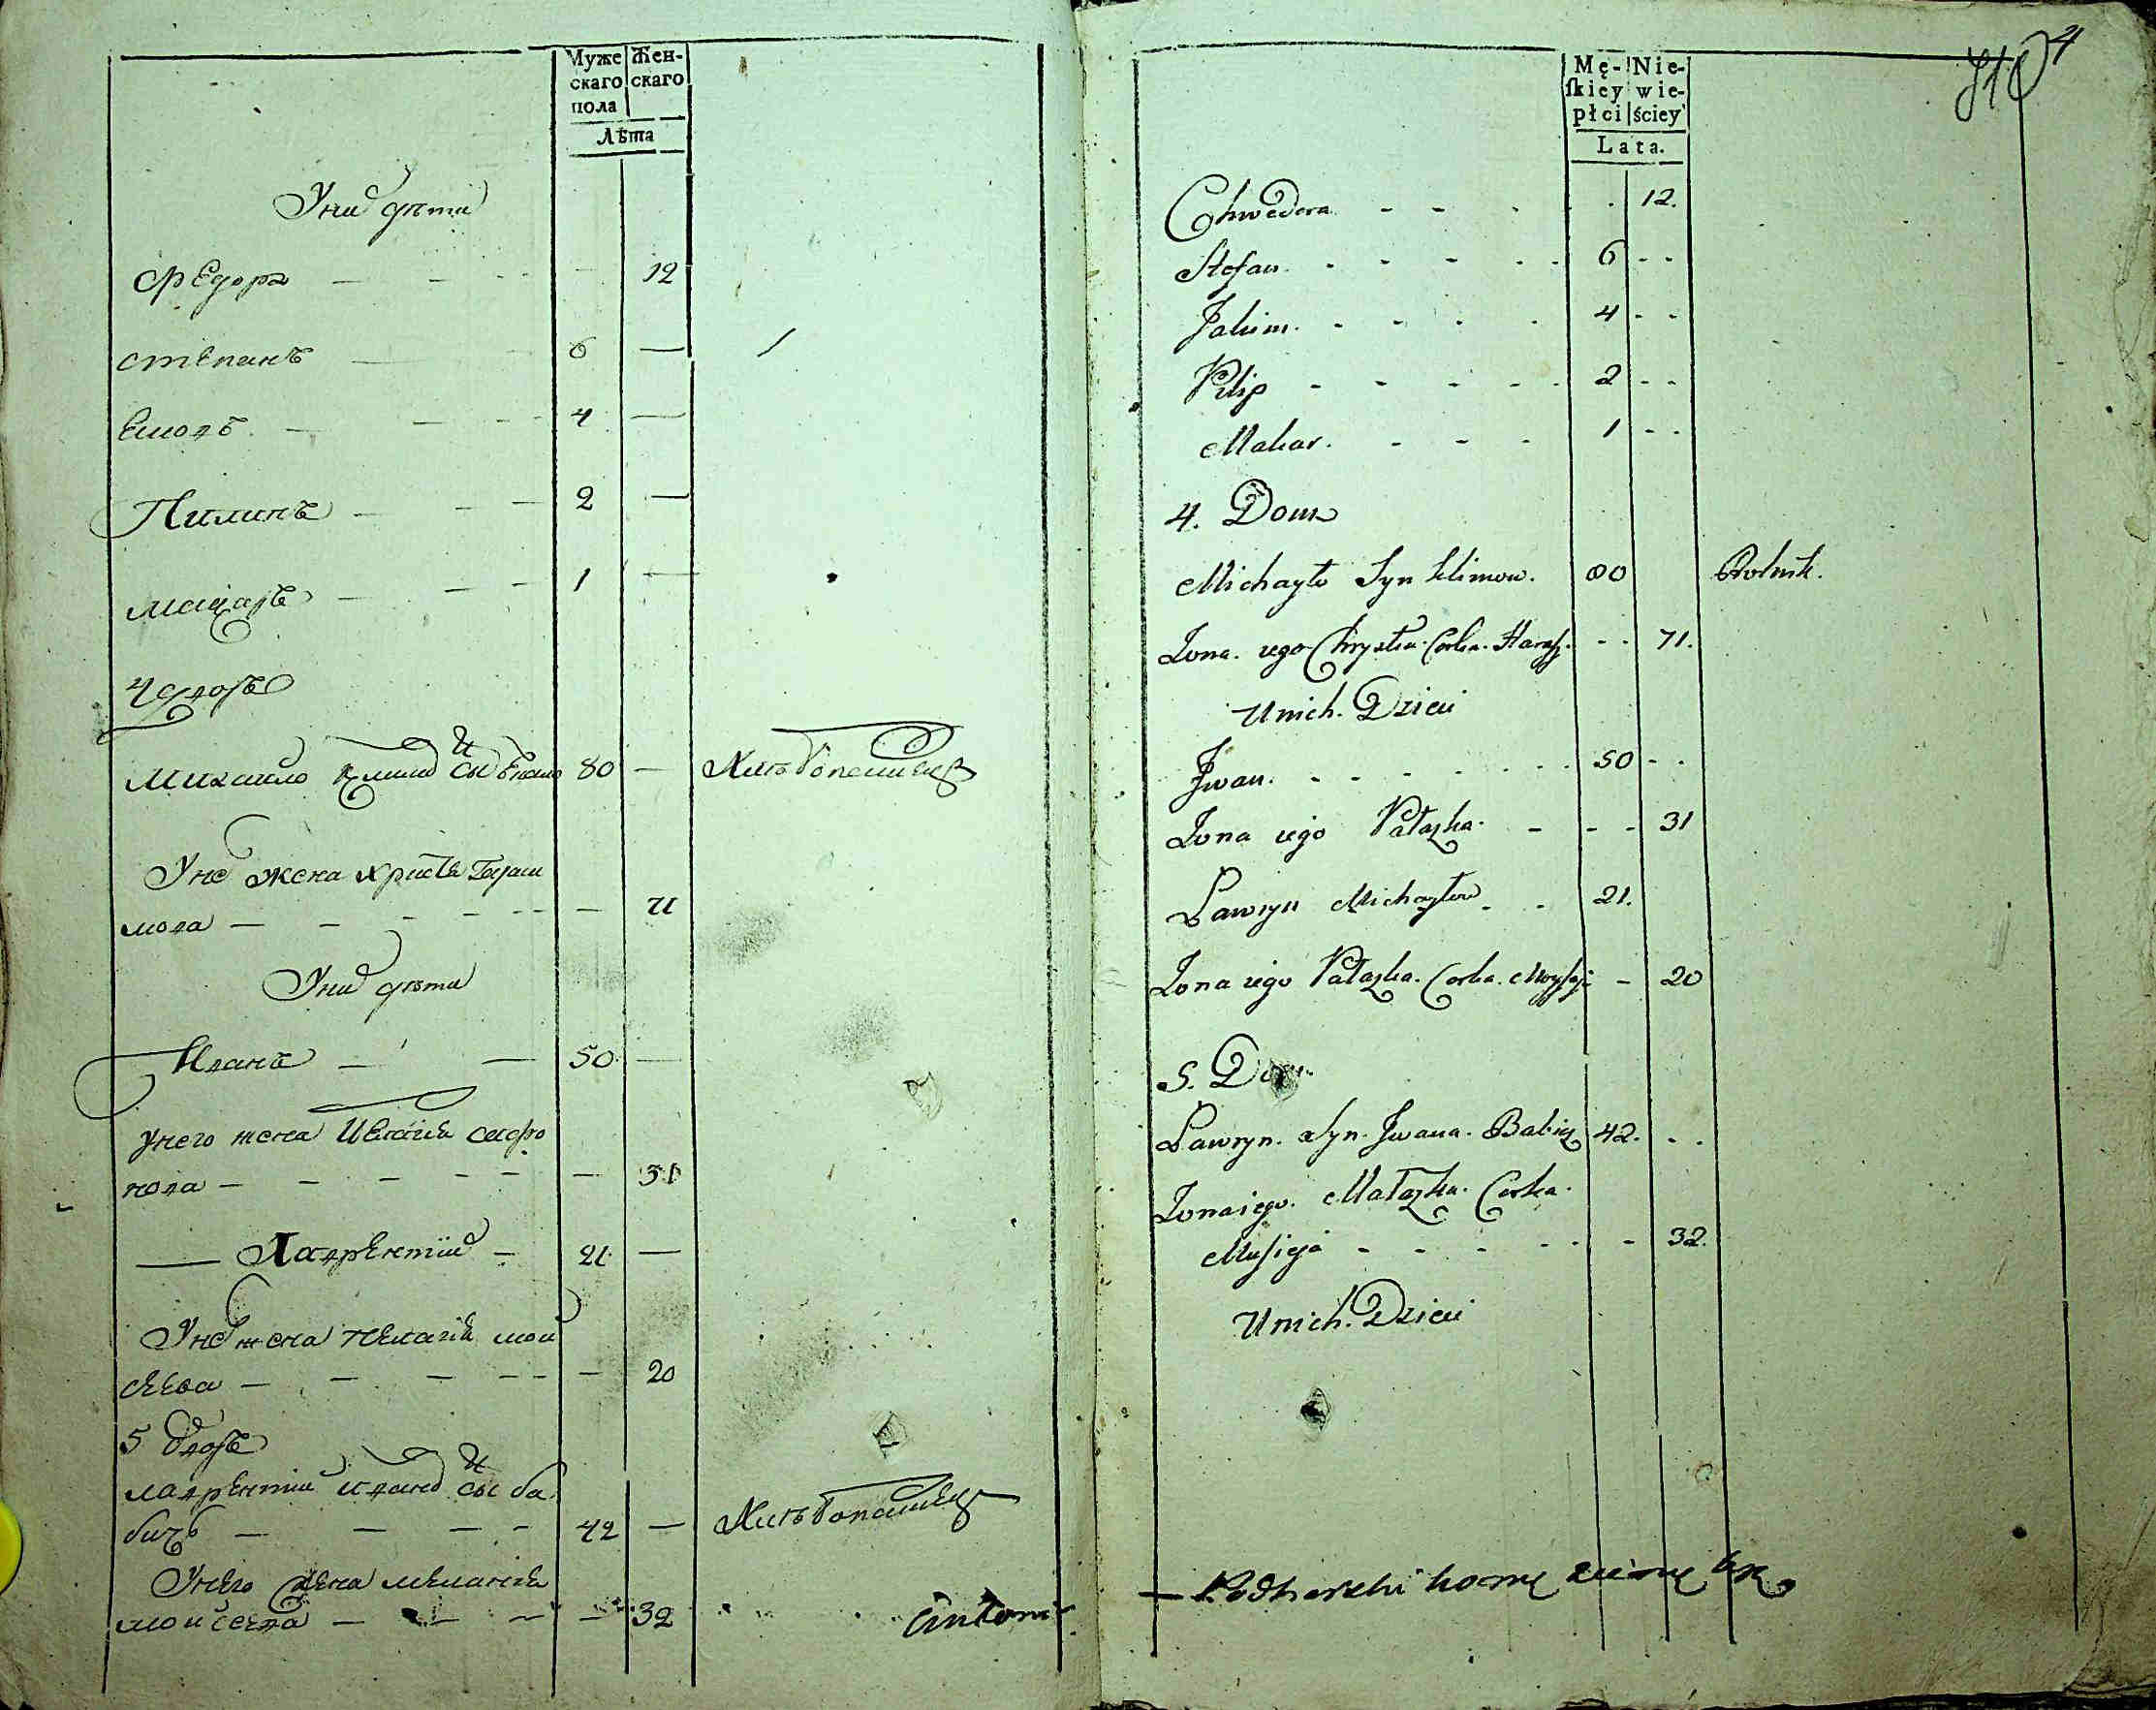 Муже
скаго
пола
Жен-
скаго
Лѣта
Уних дѣти
Федора — — — 12
Степанъ — 6 —
4 —
Пилипъ — — 2 —
Макаръ — — 1 —
4 дворъ
Михаило Климов сы 80 — Хлѣбопашецъ
Унего жена Христя Гараси
мова — — — — — 71
Уних дѣти
Иванъ — — 50 —
Унего жена Пелагія Сафро
нова — — — — — 31
— Лаврентии — 21 —
Унего жена Пелагія Мои
сеева — — — — — 20
5 дворъ
Лаврентии Иванов сы Ба
бичъ — — — — 42 — Хлѣбопашецъ
Унего жена Меланія
Моисеева — — — — 32
Antoni
4
Mę-
skiey
płci
Nie-
wie-
ściey
Lata.
Chwedora - - - . 12.
Stefan. - - - - - 6 - -
Jakim. - - - - 4 - -
Pilip - - - - - 2 - -
Makar. - - - 1 - -
4. Dom
Michayło Syn Klimow. 80 Rolnik.
Żona iego Chrystia Corka Harasz. - - 71.
U nich. Dzieci
Iwan. - - - - - - 50 - -
Żona iego Pałażka. - - - 31
Lawryn Michayłow - - 21.
Żona iego Pałażka. Corka. Moysieja - 20
5. Dom
Lawryn. Syn. Iwana. Babicz 42. - -
Żona iego. Małażka. Corka.
Musieja - - - - - - 32.
U nich. Dzieci